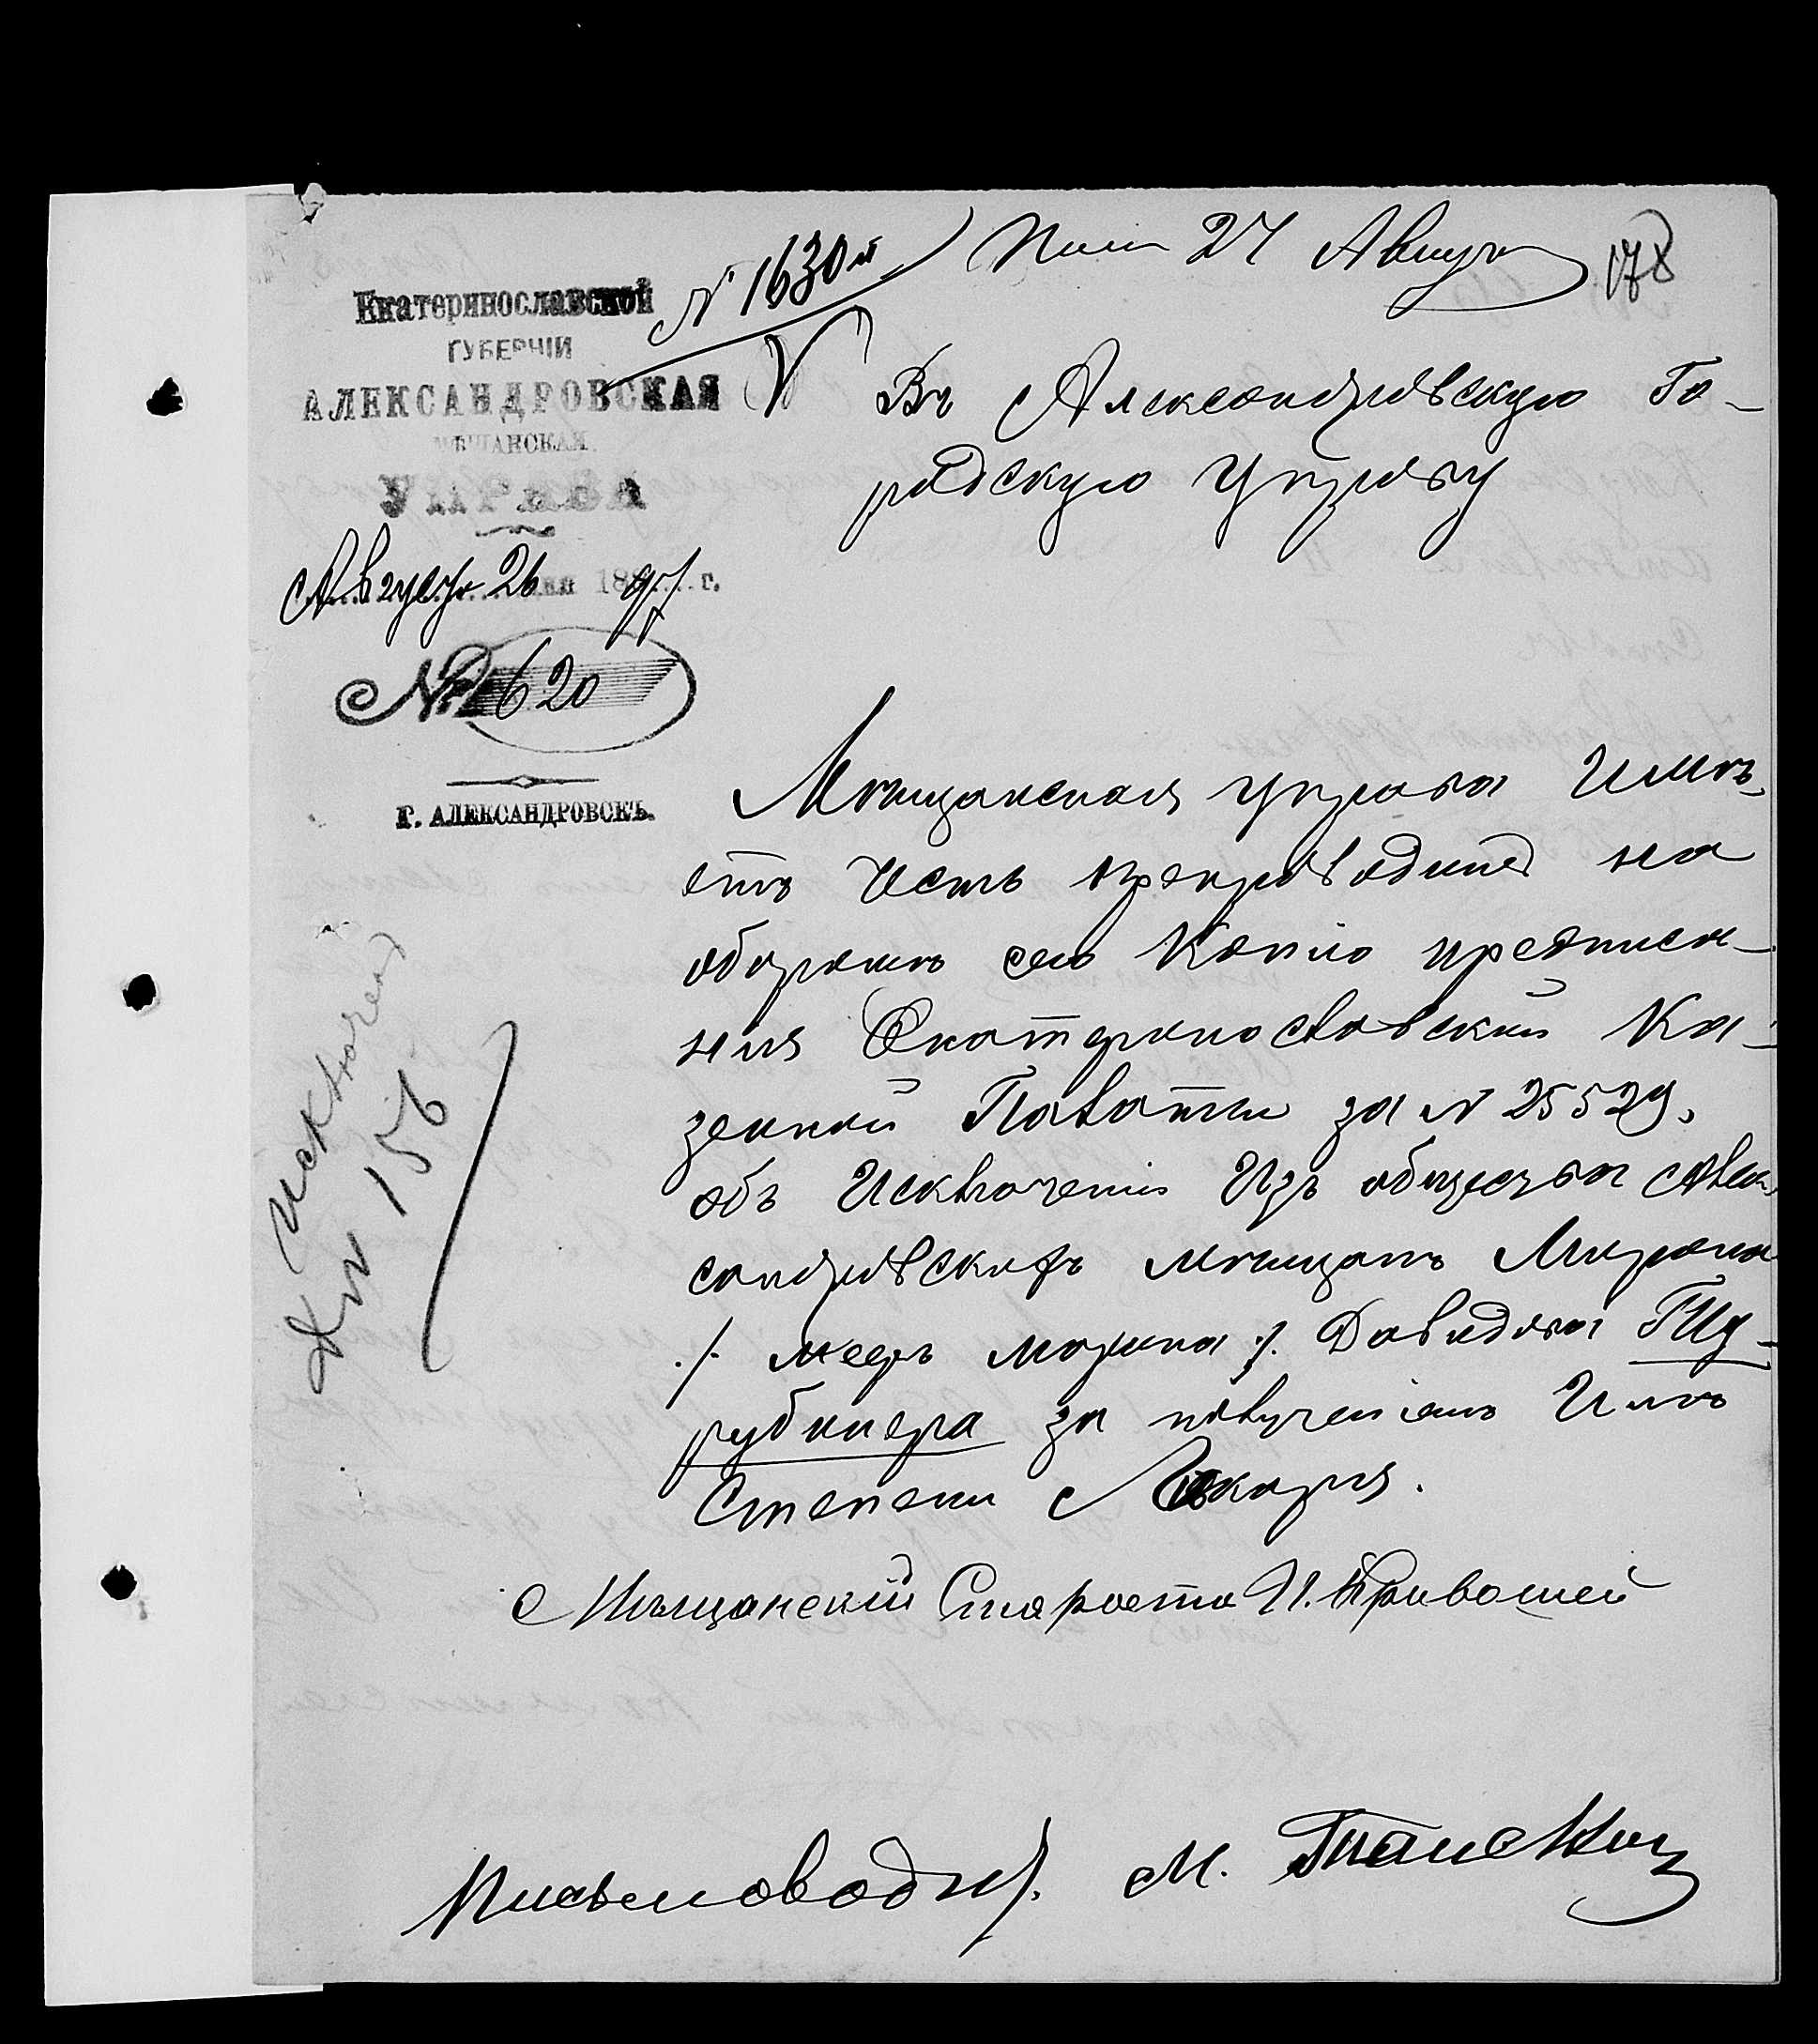 № 1630й
27 Августа
178
Екатеринославской
ГУБЕРНІИ
АЛЕКСАНДРОВСКАЯ
МѢЩАНСКАЯ
УПРАВА
Августа 26 дня 1897 г.
№ 620
Г. АЛЕКСАНДРОВСКЪ.
Въ Александровскую Го-
родскую Управу
Мѣщанская управа Имѣ-
етъ честь препроводить на
оборотѣ сего Копію предписа-
нія Екатеринославской Ка-
зенной Палаты за № 25529,
объ Исключеніи Изъ общества Алек-
сандровскихъ мѣщанъ Мирона
./. мееръ ./. Давидова
за полученіемъ Имъ
Степени Лекаря.
Мѣщанскій Староста И. Кривошей
Письмоводит. М.
исключенъ
156